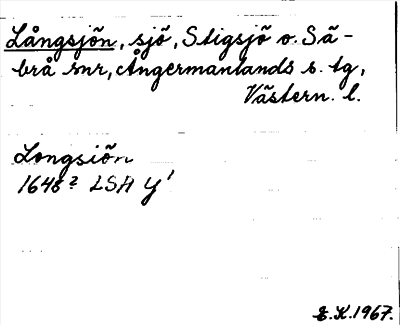 Långsjön, sjö, Stigsjö o. Sä-
brå snr, Ångermanlands s. tg,
Västern. l.
Longsiön
1648? LSA Y¹
E.K.1967.